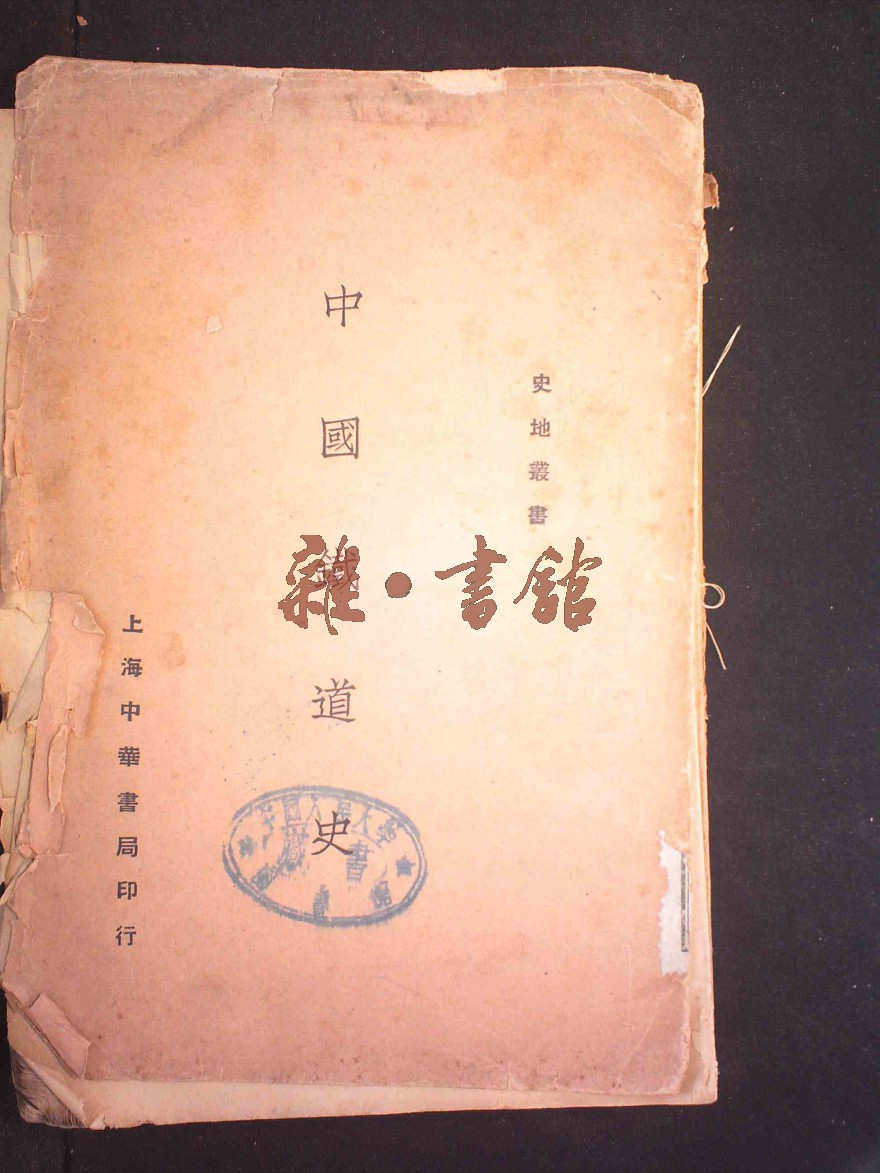 史地叢書
中國鐵道史
上海中華書局印行
雜·書館